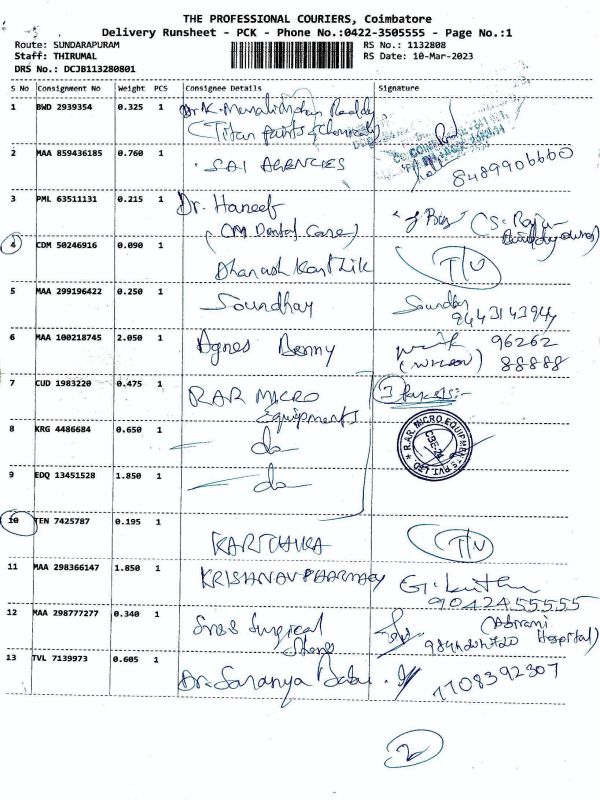 THE PROFESSIONAL COURIERS, Coimbatore
Delivery Runsheet - PCK - Phone No.:0422-3505555 - Page No.:1
Route: SUNDARAPURAM
RS No.: 1132808
Staff: THIRUMAL
RS Date: 10-Mar-2023
DRS No.: DCJB113280801
S No Consignment No Weight PCS Consignee Details Signature
1 BWD 2939354 0.325 1 Dr K. Reddy
(Titan paints & Chemicals)
2 MAA 859436185 0.760 1 SAI AGENCIES
8489906600
3 PML 63511131 0.215 1 Dr. Haneef
(CM Dental Care)
4 CDM 50246916 0.090 1 Dhanush Karthik T/U
5 MAA 299196422 0.250 1 Soundhay
9443143944
6 MAA 100218745 2.050 1 Agnes Benny 96262
88888
7 CUD 1983220 0.475 1 RAR MICRO
Equipments
R.A.R. MICRO EQUIPMENTS PVT LTD
8 KRG 4486684 0.650 1 do
9 EDQ 13451528 1.850 1 do
10 TEN 7425787 0.195 1 KARTHIKA T/U
11 MAA 298366147 1.850 1 KRISHNAV PHARMACY
9042455555
12 MAA 298777277 0.340 1 Surgical
(Abirami
Hospital)
13 TVL 7139973 0.605 1 Dr. Saranya
7708392307
2